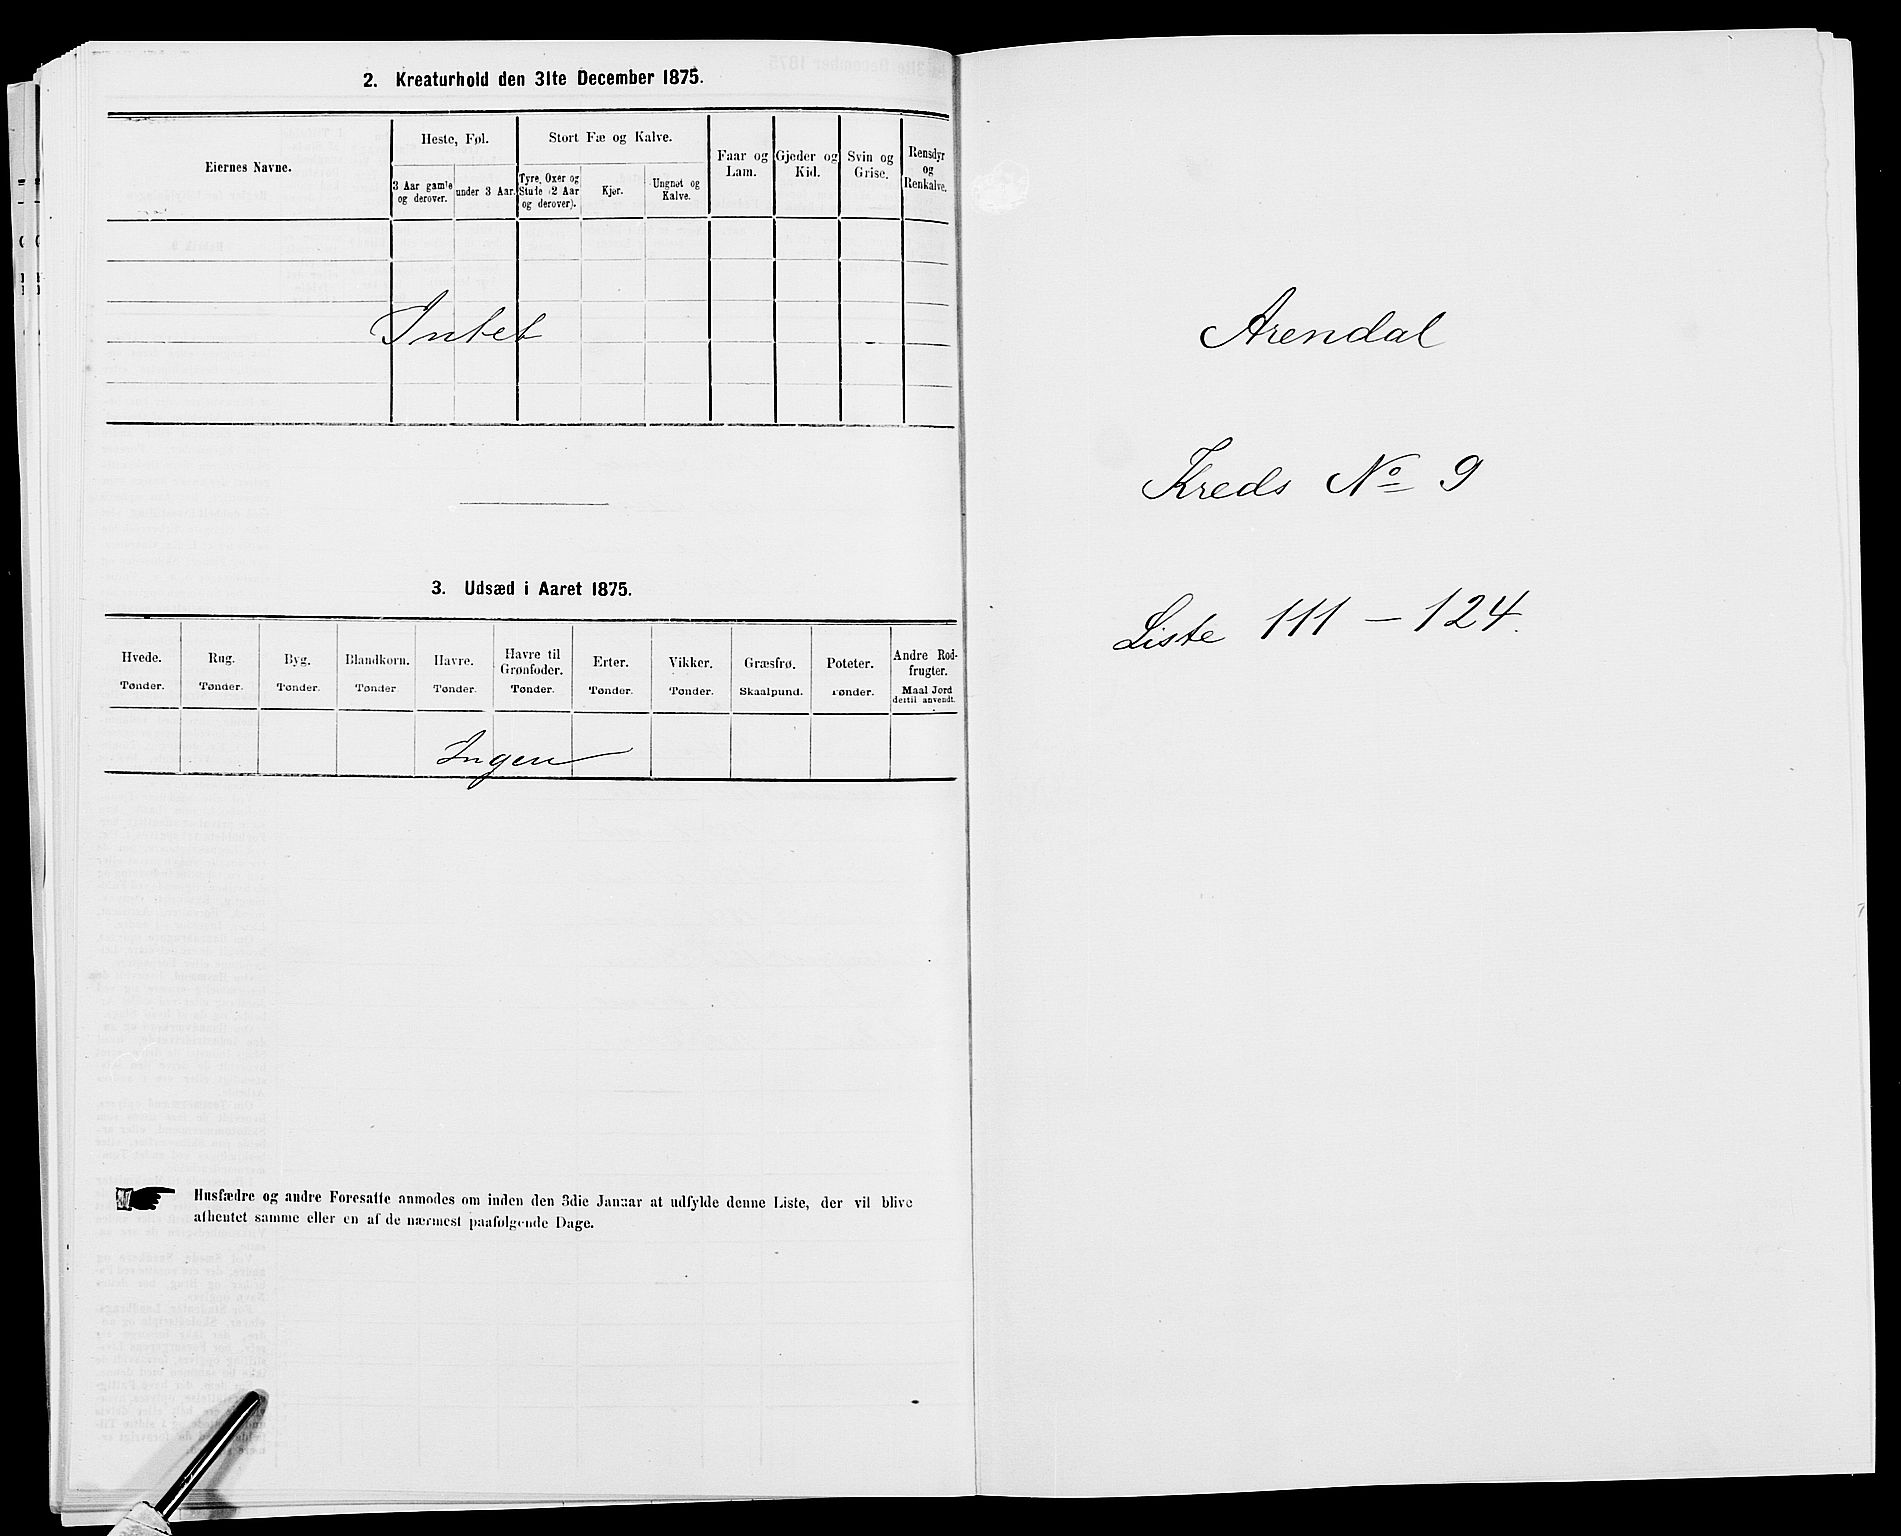 2. Kreaturhold den 31te December 1875.
Eiernes Navne.
Heste, Føl.
3 Aar gamle og derover.
under 3 Aar.
Stort Fæ og Kalve.
Tyre, Oxer og Stude (2 Aar og derover).
Kjør.
Ungnøt og Kalve.
Faar og Lam.
Gjeder og Kid.
Svin og Grise.
Rensdyr og Renkalve.
Intet
3. Udsæd i Aaret 1875.
Hvede. Tønder.
Rug. Tønder.
Byg. Tønder.
Blandkorn. Tønder
Havre. Tønder.
Havre til Grønfoder. Tønder.
Erter. Tønder.
Vikker. Tønder.
Græsfrø. Skaalpund.
Poteter. Tønder.
Andre Rodfrugter. Maal Jord dertil anvendt.
Ingen
Husfædre og andre Foresatte anmodes om inden den 3die Januar at udfylde denne Liste, der vil blive
afhentet samme eller en af de nærmest paafølgende Dage.
Arendal
Kreds No 9
Liste 111 – 124.